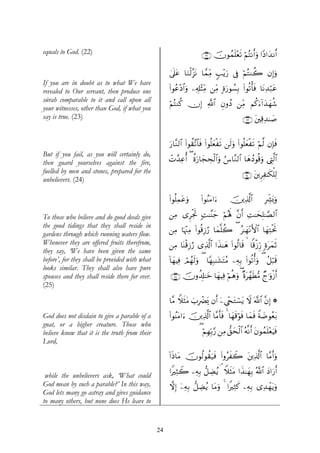 equals to God. (22)
أَندَادًا وَأَنتُمْ تَعْلَمُونَ ﴿٢٢﴾
If you are in doubt as to what We have
revealed to Our servant, then produce one
sûrah comparable to it and call upon all
your witnesses, other than God, if what you
say is true. (23)
وَإِن كُنتُمْ فِى رَيْبٍ مِّمَّا نَزَّلْنَا عَلَىٰ
عَبْدِنَا فَأْتُوا۟ بِسُورَةٍ مِّن مِّثْلِهِۦ وَٱدْعُوا۟
شُهَدَآءَكُم مِّن دُونِ ٱللَّهِ إِن كُنتُمْ
صَـٰدِقِينَ ﴿٢٣﴾
But if you fail, as you will certainly do,
then guard yourselves against the fire,
fuelled by men and stones, prepared for the
unbelievers. (24)
فَإِن لَّمْ تَفْعَلُوا۟ وَلَن تَفْعَلُوا۟ فَٱتَّقُوا۟ ٱلنَّارَ
ٱلَّتِى وَقُودُهَا ٱلنَّاسُ وَٱلْحِجَارَةُ ۖ أُعِدَّتْ
لِلْكَـٰفِرِينَ ﴿٢٤﴾
To those who believe and do good deeds give
the good tidings that they shall reside in
gardens through which running waters flow.
Whenever they are offered fruits therefrom,
they say, 'We have been given the same
before', for they shall be provided with what
looks similar. They shall also have pure
spouses and they shall reside there for ever.
(25)
وَبَشِّرِ ٱلَّذِينَ ءَامَنُوا۟ وَعَمِلُوا۟
ٱلصَّـٰلِحَـٰتِ أَنَّ لَهُمْ جَنَّـٰتٍ تَجْرِى مِن
تَحْتِهَا ٱلْأَنْهَـٰرُ ۖ كُلَّمَا رُزِقُوا۟ مِنْهَا مِن
ثَمَرَةٍ رِّزْقًا ۙ قَالُوا۟ هَـٰذَا ٱلَّذِى رُزِقْنَا مِن
قَبْلُ ۖ وَأُتُوا۟ بِهِۦ مُتَشَـٰبِهًا ۖ وَلَهُمْ فِيهَآ
أَزْوَٰجٌ مُّطَهَّرَةٌ ۖ وَهُمْ فِيهَا خَـٰلِدُونَ ﴿٢٥﴾
God does not disdain to give a parable of a
gnat, or a higher creature. Those who
believe know that it is the truth from their
Lord,
۞ إِنَّ ٱللَّهَ لَا يَسْتَحْىِۦٓ أَن يَضْرِبَ مَثَلًا مَّا
بَعُوضَةً فَمَا فَوْقَهَا ۚ فَأَمَّا ٱلَّذِينَ ءَامَنُوا۟
فَيَعْلَمُونَ أَنَّهُ ٱلْحَقُّ مِن رَّبِّهِمْ ۖ
while the unbelievers ask, 'What could
God mean by such a parable?' In this way,
God lets many go astray and gives guidance
to many others, but none does He leave to
وَأَمَّا ٱلَّذِينَ كَفَرُوا۟ فَيَقُولُونَ مَاذَآ
أَرَادَ ٱللَّهُ بِهَـٰذَا مَثَلًا ۘ يُضِلُّ بِهِۦ كَثِيرًا
وَيَهْدِى بِهِۦ كَثِيرًا ۚ وَمَا يُضِلُّ بِهِۦٓ إِلَّا
24